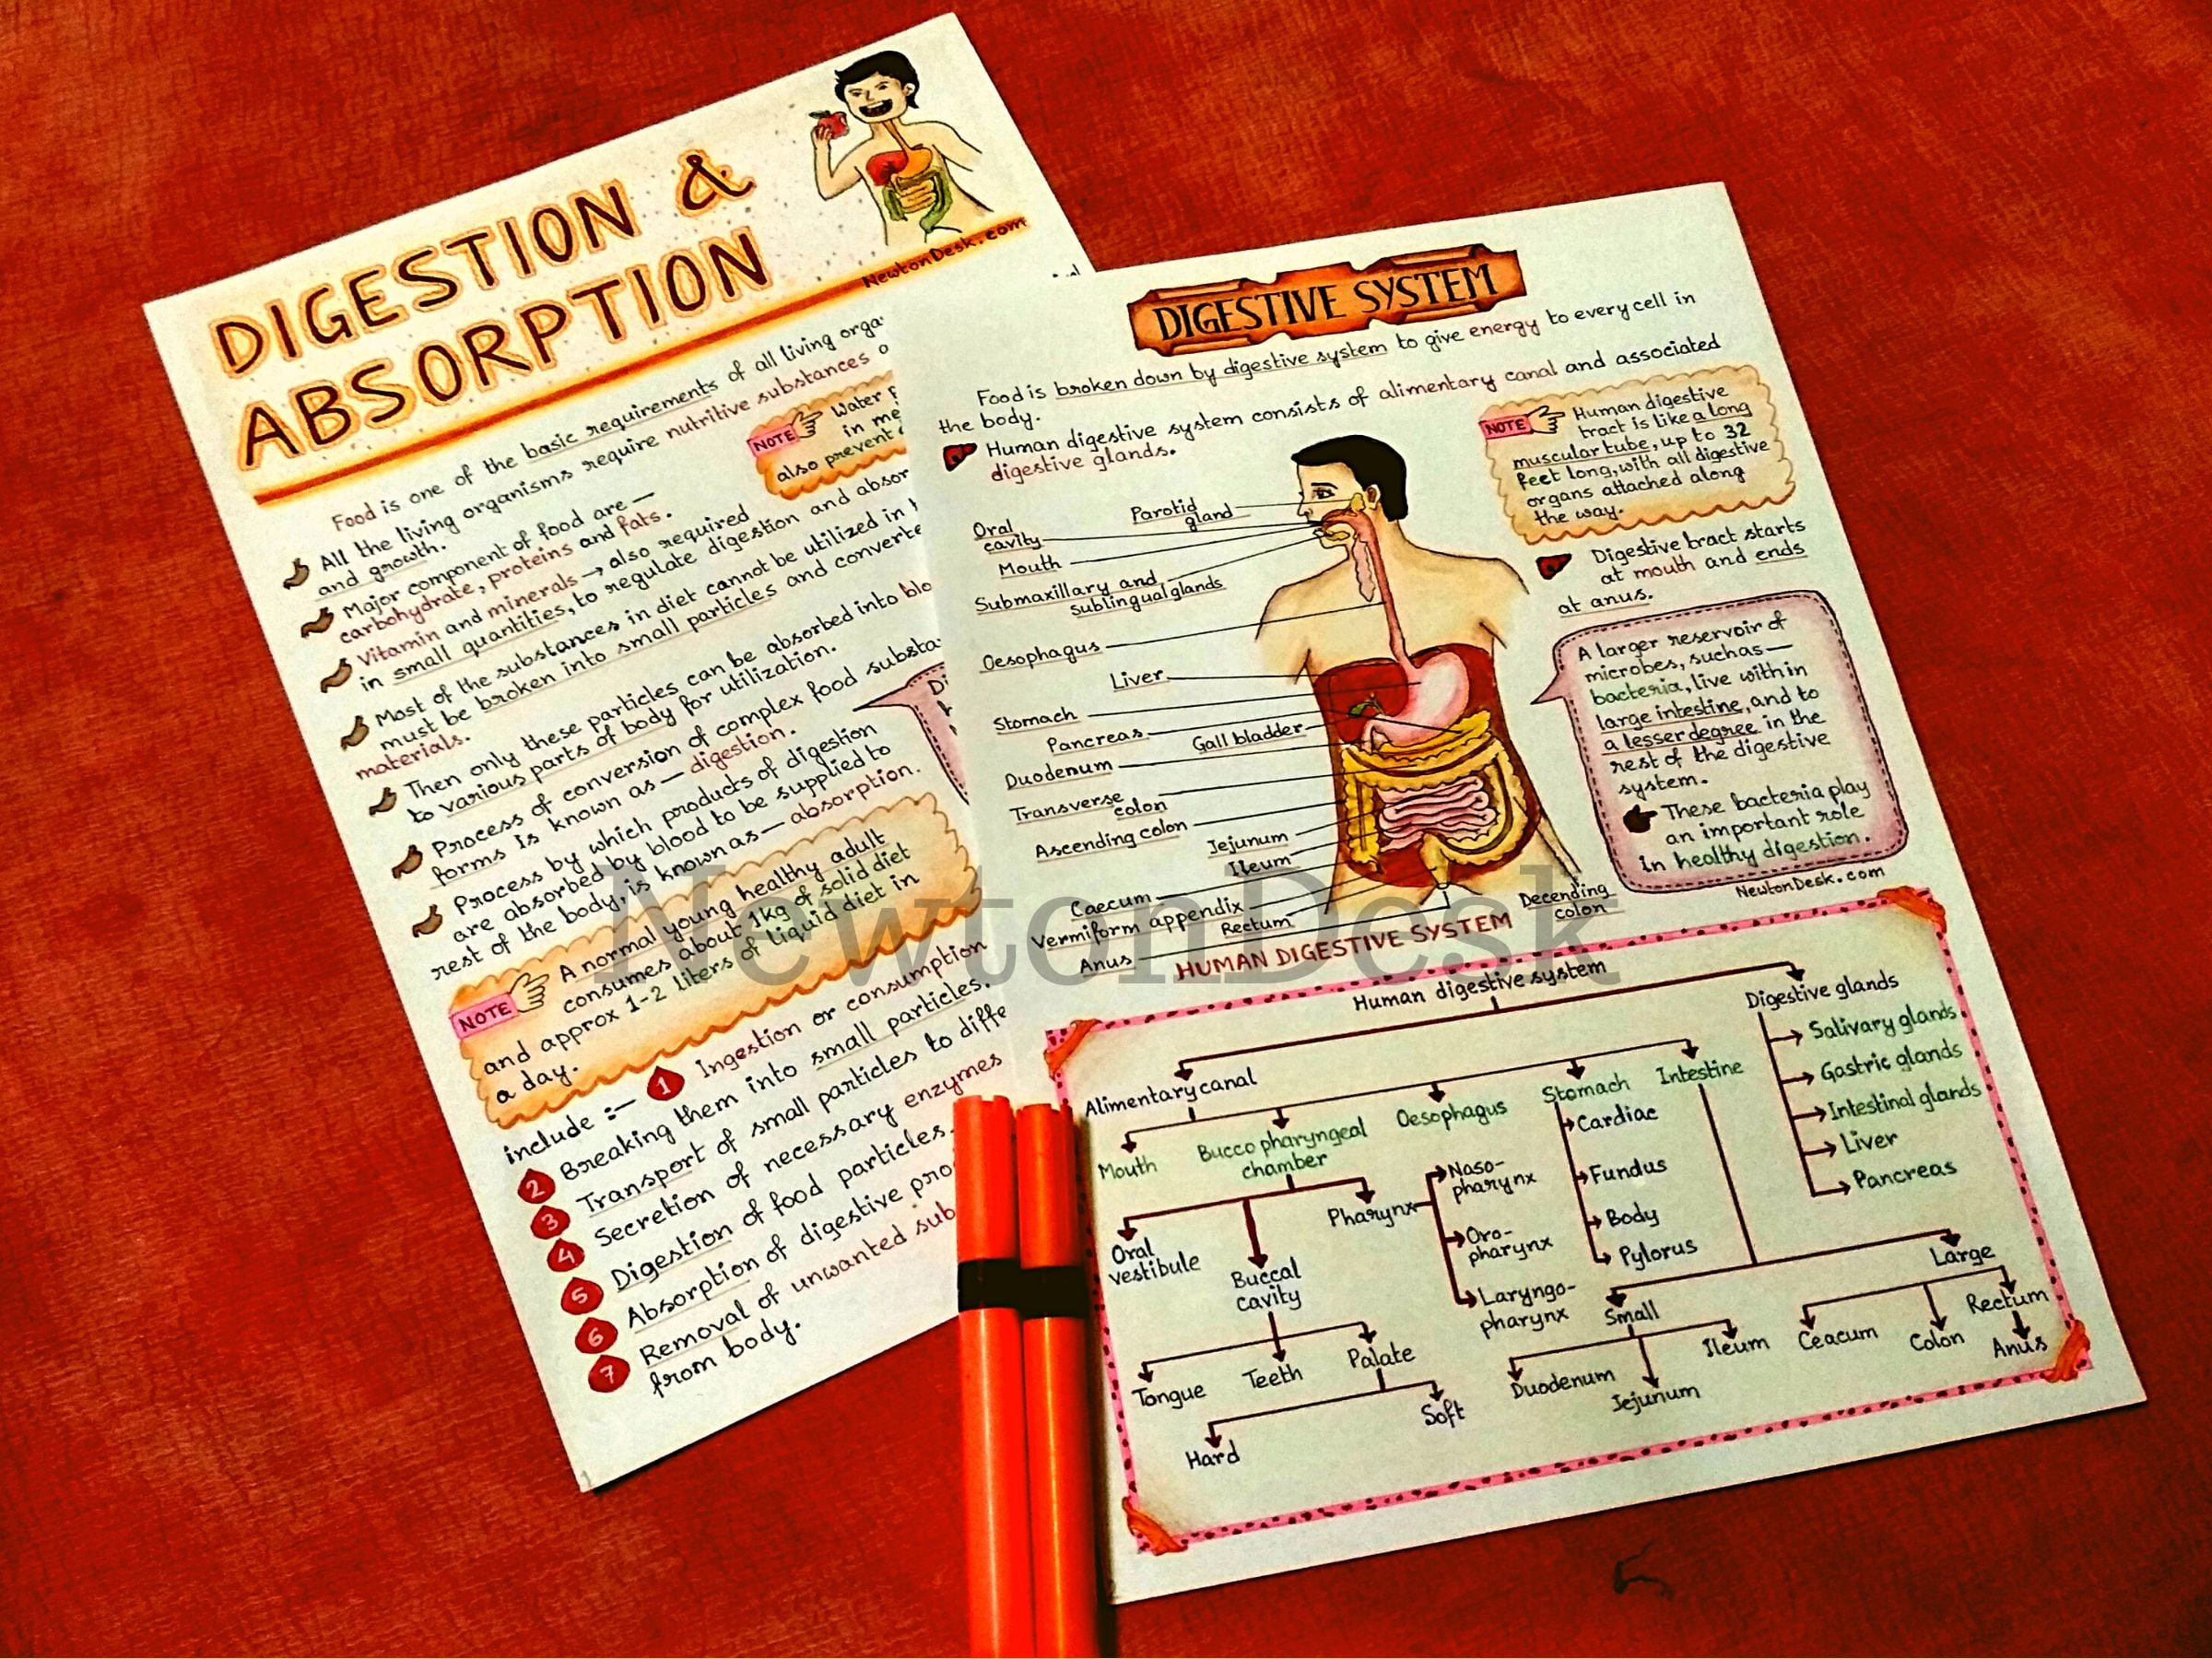 DIGESTION &
ABSORPTION
NewtonDesk.com
Food is one of the basic requirements of all living
All the living organisms require nutritive substances
and growth.
NOTE
Water
in
also prevent
Major component of food are —
carbohydrate, proteins and fats.
Vitamin and minerals → also required
in small quantities, to regulate digestion and
Most of the substances in diet cannot be utilized in
must be broken into small particles and
materials.
Then only these particles can be absorbed into
to various parts of body for utilization.
Process of conversion of complex food
forms is known as — digestion.
Process by which products of digestion
are absorbed by blood to be supplied to
rest of the body, is known as — absorption.
NOTE
A normal young healthy adult
consumes about 1kg of solid diet
and approx 1-2 liters of liquid diet in
a day.
include :— 1 Ingestion or consumption
2 Breaking them into small particles.
3 Transport of small particles to
4 Secretion of necessary enzymes
5 Digestion of food particles.
6 Absorption of digestive
7 Removal of unwanted
from body.
DIGESTIVE SYSTEM
Food is broken down by digestive system to give energy to every cell in
the body.
Human digestive system consists of alimentary canal and associated
digestive glands.
NOTE
Human digestive
tract is like a long
muscular tube, up to 32
feet long, with all digestive
organs attached along
the way.
Digestive tract starts
at mouth and ends
at anus.
A larger reservoir of
microbes, such as —
bacteria, live within
large intestine, and to
a lesser degree in the
rest of the digestive
system.
These bacteria play
an important role
in healthy digestion.
NewtonDesk.com
Parotid
gland
Oral
cavity
Mouth
Submaxillary and
sublingual glands
Oesophagus
Liver
Stomach
Pancreas
Gall bladder
Duodenum
Transverse
colon
Ascending colon
Jejunum
Ileum
Caecum
Vermiform appendix
Rectum
Anus
Decending
colon
HUMAN DIGESTIVE SYSTEM
NewtonDesk
Human digestive system
Alimentary canal
Digestive glands
Salivary glands
Gastric glands
Intestinal glands
Liver
Pancreas
Mouth
Bucco pharyngeal
chamber
Oesophagus
Stomach
Intestine
Cardiac
Fundus
Body
Pylorus
Oral
vestibule
Buccal
cavity
Pharynx
Naso-
pharynx
Oro-
pharynx
Laryngo-
pharynx
Tongue
Teeth
Palate
Hard
Soft
Small
Large
Duodenum
Jejunum
Ileum
Ceacum
Colon
Rectum
Anus